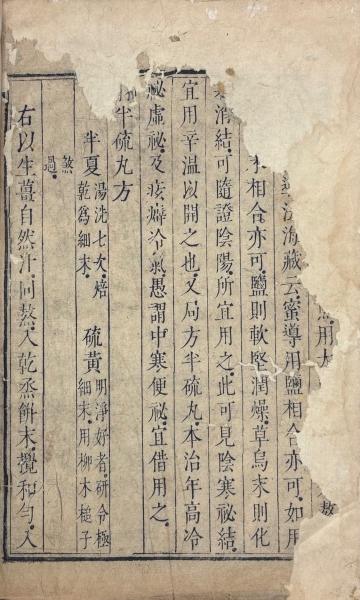 然用大
敖
海藏云蜜導用鹽相合亦可如用
末相合亦可鹽則軟堅潤燥草烏末則化
消結可隨證陰陽所宜用之此可見陰寒祕結
宜用辛温以開之也又局方半硫丸本治年高冷
祕虛祕及痃癖冷氣愚謂中寒便祕宜借用之
半硫丸方
半夏湯洗七次焙乾為細末硫黄明淨好者研令極細末用柳木槌子
殺過
右以生薑自然汁同熬入乾蒸餅末攪和勻入